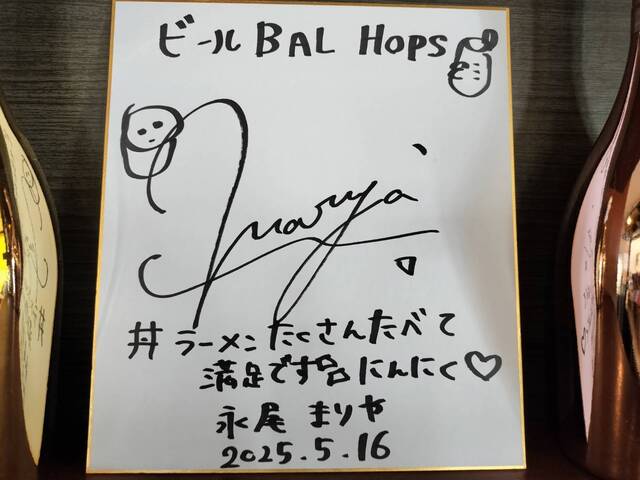 ビール BAL HOPS
Mariya
# ラーメン たくさんたべて
満足です にんにく♡
永尾 まりや
2025.5.16